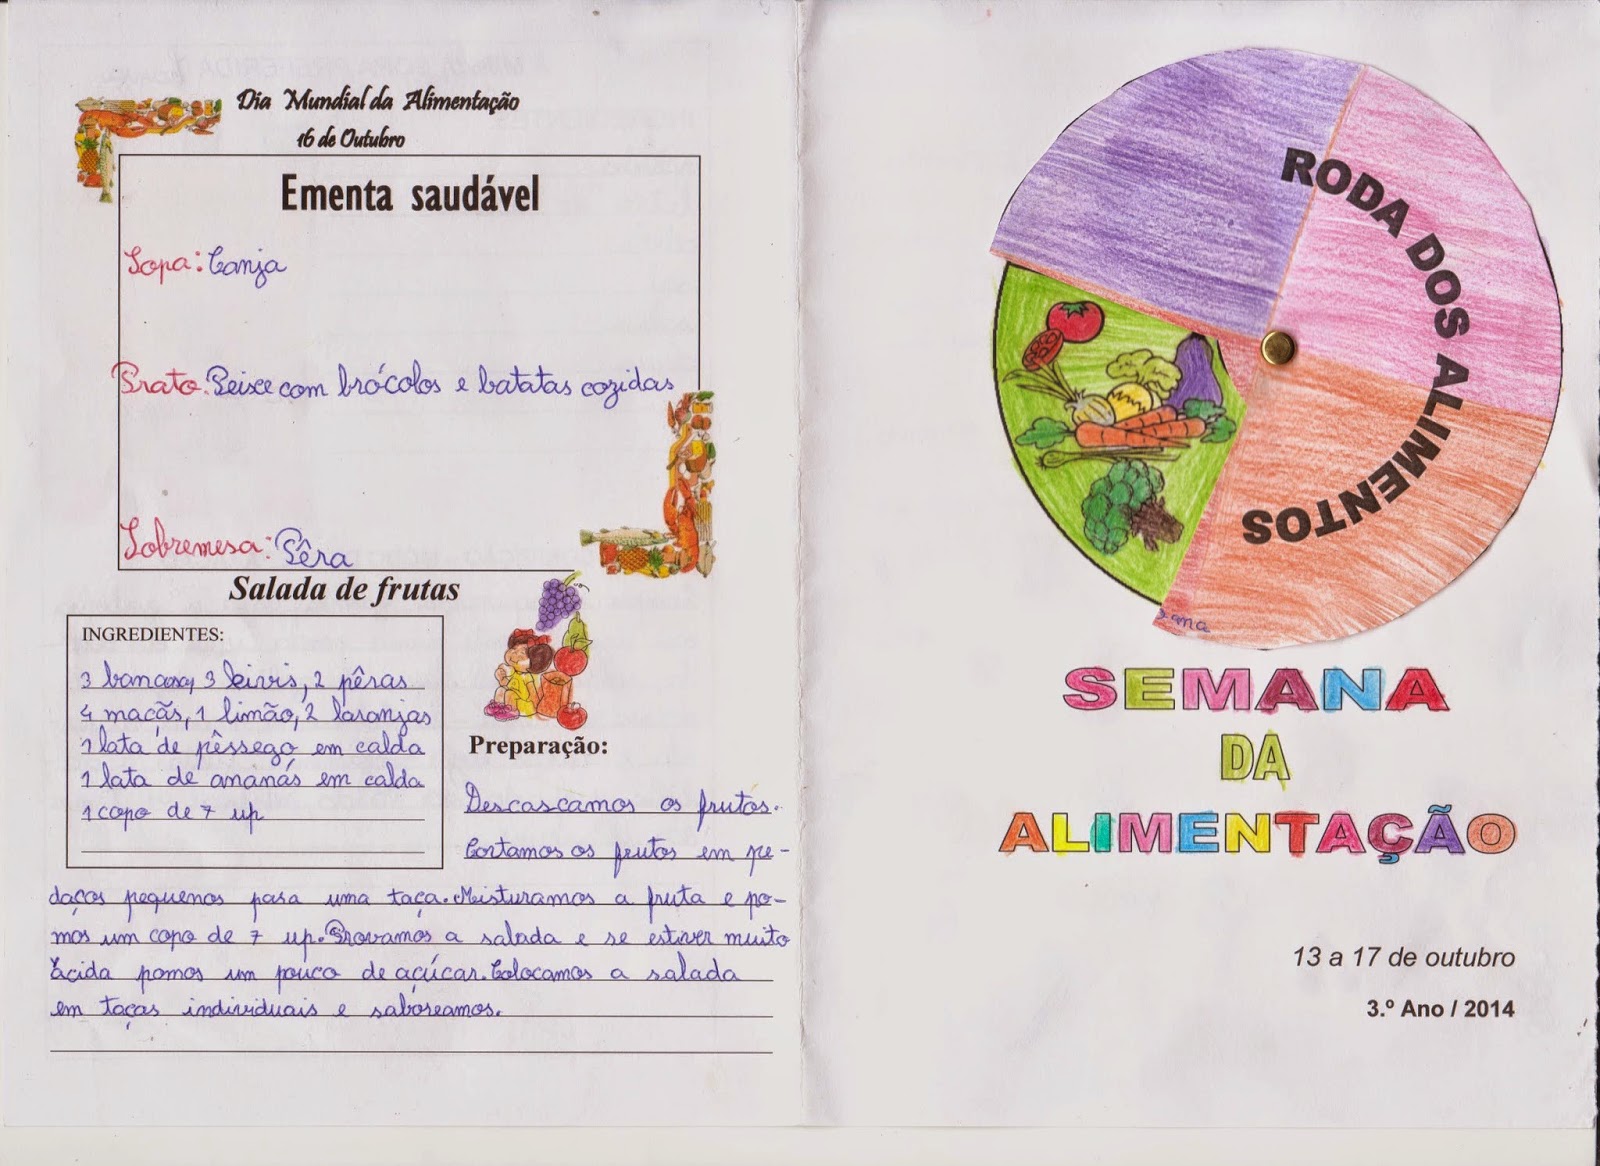 Dia Mundial da Alimentação
16 de Outubro
Ementa saudável
Sopa: Canja
Prato: Peixe com brócolos e batatas cozidas
Sobremesa: Pêra
Salada de frutas
INGREDIENTES:
3 bananas, 3 kivis, 2 pêras
4 maçãs, 1 limão, 2 laranjas
1 lata de pêssego em calda
1 lata de ananás em calda
1 copo de 7 up
Preparação:
Descascamos os frutos.
Cortamos os frutos em pe-
daços pequenos para uma taça. Misturamos a fruta e po-
mos um copo de 7 up. Provamos a salada e se estiver muito
ácida pomos um pouco de açúcar. Colocamos a salada
em taças individuais e saboreamos.
RODA DOS ALIMENTOS
SEMANA
DA
ALIMENTAÇÃO
13 a 17 de outubro
3.º Ano / 2014